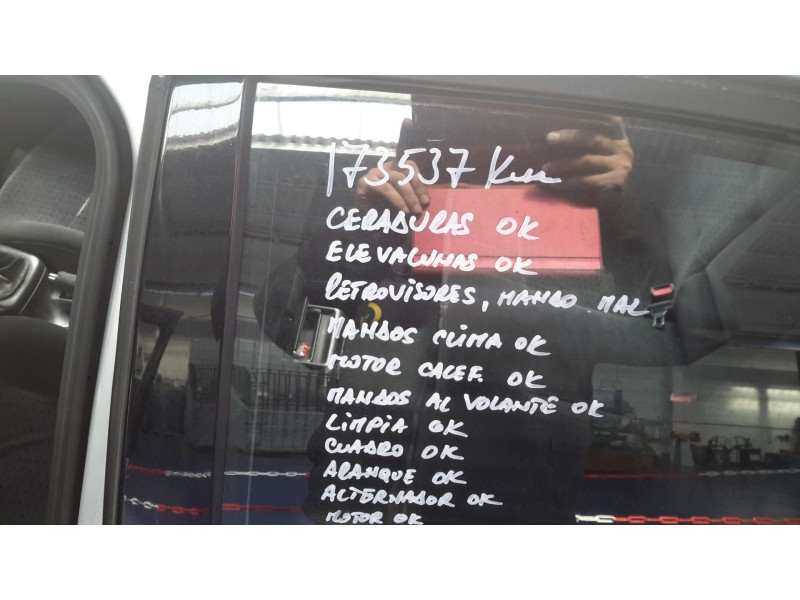 173537 Km
CERADURAS OK
ELEVALUNAS OK
RETROVISORES, MANDO MAL
MANDOS CLIMA OK
MOTOR CALEF. OK
MANDOS AL VOLANTE OK
LIMPIA OK
CUADRO OK
ARANQUE OK
ALTERNADOR OK
MOTOR OK